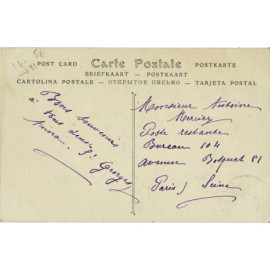 POST CARD Carte Postale POSTKARTE
BRIEFKAART — POSTKAART
CARTOLINA POSTALE — ОТКРЫТОЕ ПИСЬМО — TARJETA POSTAL
Bons souvenirs
à tous deux
Georges
Monsieur Antoine
Mercier
Poste restante
Bureau 104
avenue 81
Paris) Seine